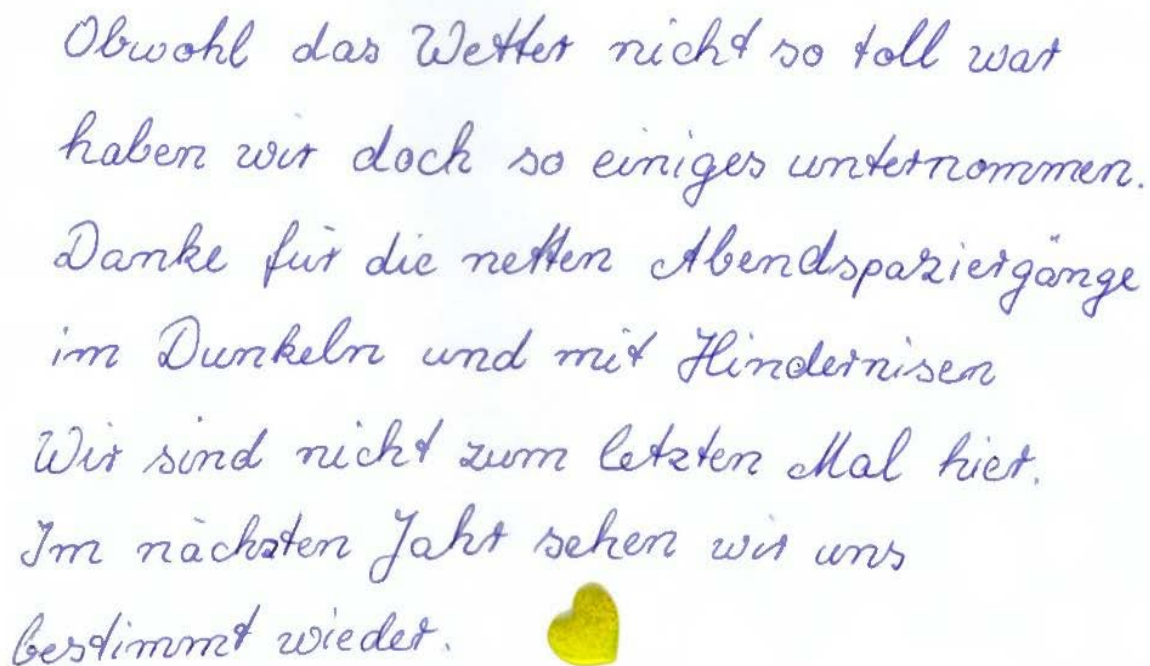 Obwohl das Wetter nicht so toll war
haben wir doch so einiges unternommen.
Danke für die netten Abendspaziergänge
im Dunkeln und mit Hindernisen
Wir sind nicht zum letzten Mal hier.
Im nächsten Jahr sehen wir uns
bestimmt wieder.